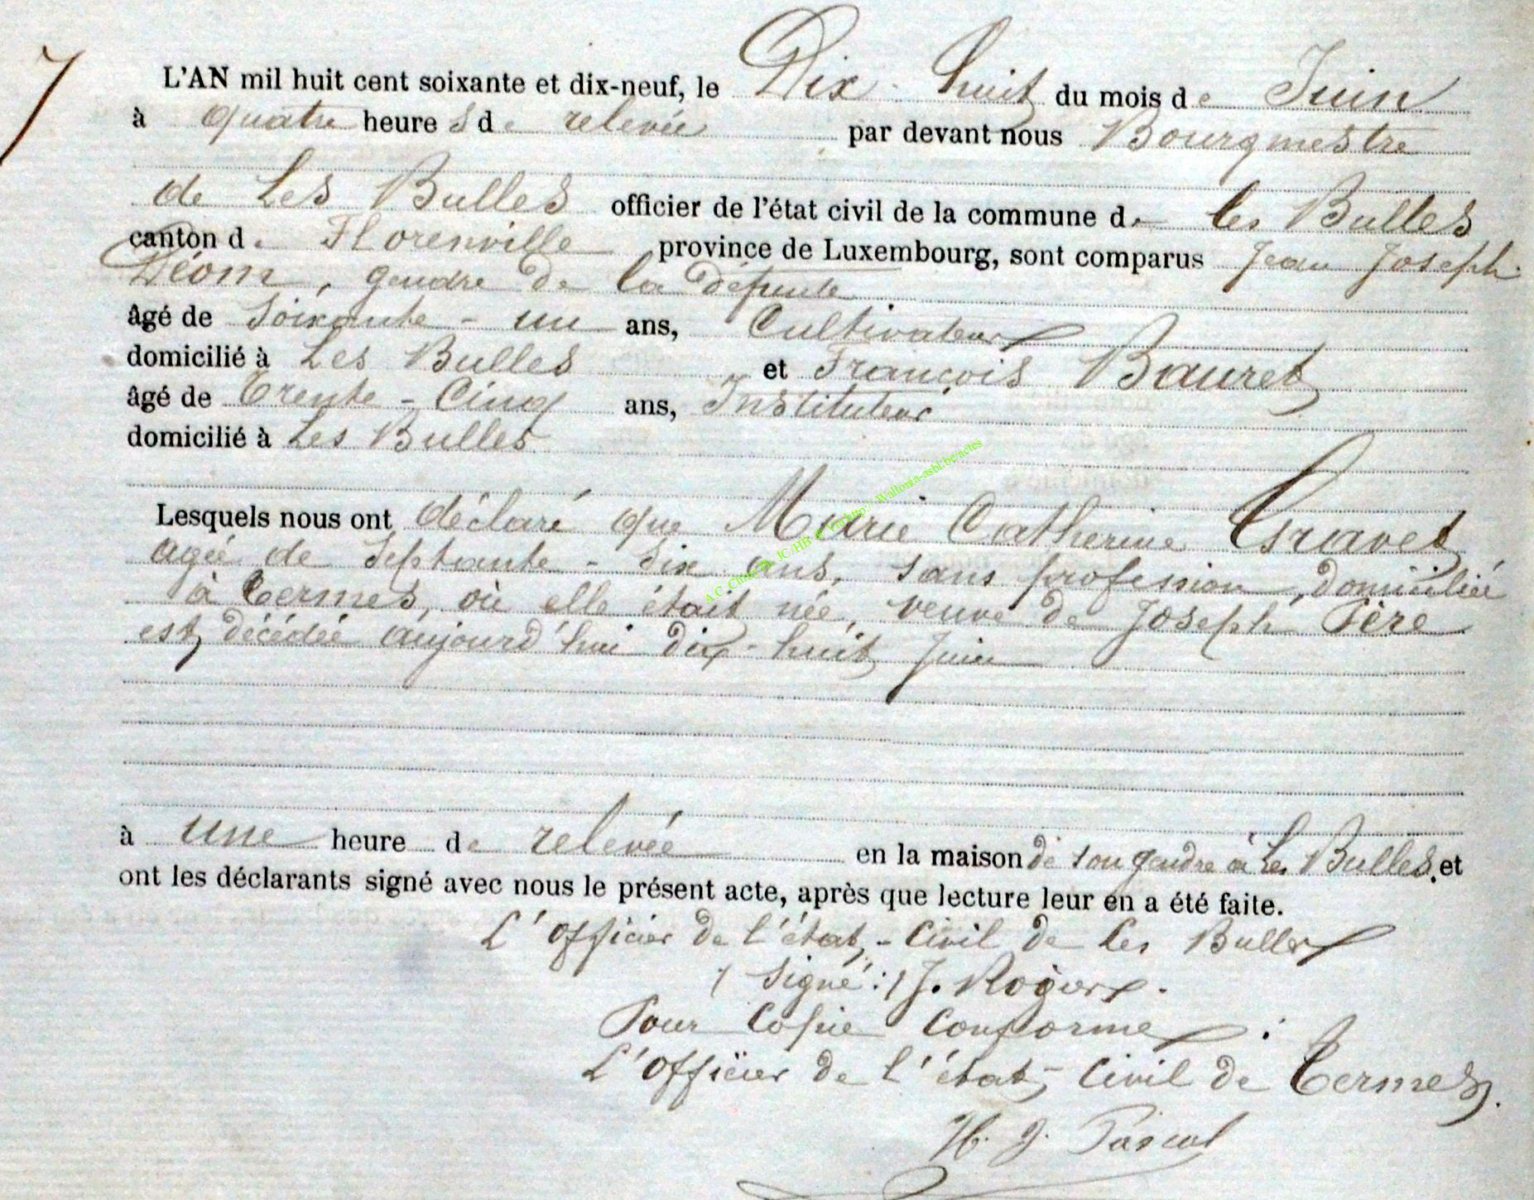 7
L'AN mil huit cent soixante et dix-neuf, le Dix-huit du mois de Juin
à quatre heures de relevée par devant nous Bourgmestre
de Les Bulles officier de l'état civil de la commune de les Bulles
canton de Florenville province de Luxembourg, sont comparus Jean Joseph
Déom, gendre de la défunte
âgé de Soixante-un ans, Cultivateur
domicilié à Les Bulles et François Bauret
âgé de Trente-Cinq ans, Instituteur
domicilié à Les Bulles
Lesquels nous ont déclaré que Marie Catherine Gravet
agée de Septante-Six ans, sans profession, domiciliée
à Termes, où elle était née, veuve de Joseph Père
est décédée aujourd'hui dix-huit Juin
à une heure de relevée en la maison de son gendre à Les Bulles, et
ont les déclarants signé avec nous le présent acte, après que lecture leur en a été faite.
L'Officier de l'état-Civil de Les Bulles
/ Signé: / J. Rogier.
Pour Copie Conforme:
L'Officier de l'état-Civil de Termes.
H. J. Pascal